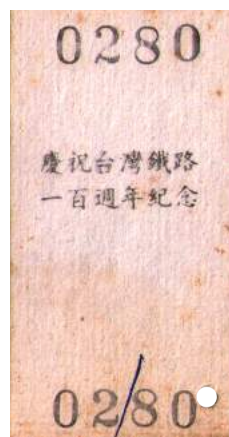 0280
慶祝台灣鐵路
一百週年紀念
0280